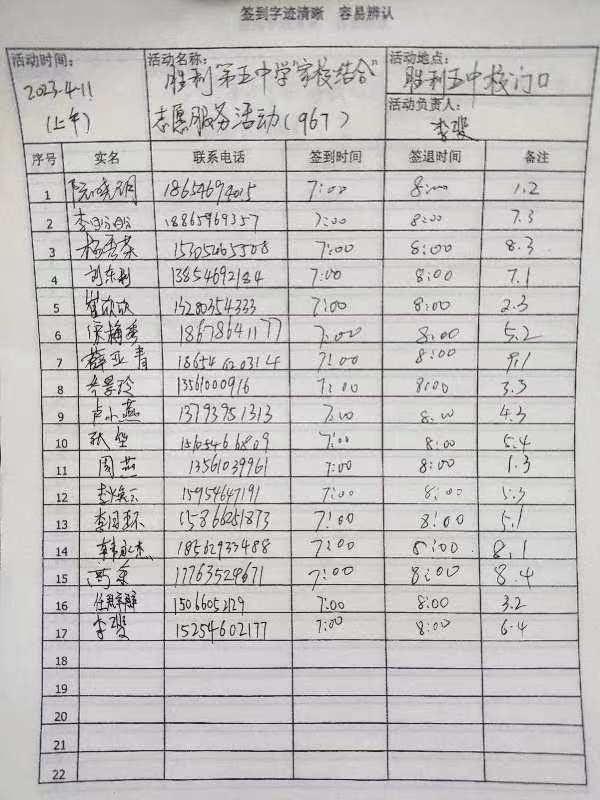 签到字迹清晰 容易辨认
活动时间：
2023.4.11
(上午)
活动名称：
胜利第五中学"家校结合"
志愿服务活动(967)
活动地点：
胜利五中校门口
活动负责人：
李斐
序号 实名 联系电话 签到时间 签退时间 备注
1 7:00 8:00 1.2
2 18865969357 7:00 8:00 7.3
3 7:00 8:00 8.3
4 13854692184 7:00 8:00 7.1
5 7:00 8:00 2.3
6 18678641177 7:00 8:00 5.2
7 薛亚青 18654620314 7:00 8:00 9.1
8 13561000916 7:00 8:00 3.3
9 卢小燕 13793951313 7:00 8:00 4.3
10 7:00 8:00 5.4
11 周燕 13561039961 7:00 8:00 1.3
12 15954647191 7:00 8:00 5.3
13 15866251873 7:00 8:00 5.1
14 韩永杰 18562933488 7:00 8:00 8.1
15 17763529671 7:00 8:00 8.4
16 15066052129 7:00 8:00 3.2
17 李斐 15254602177 7:00 8:00 6.4
18
19
20
21
22